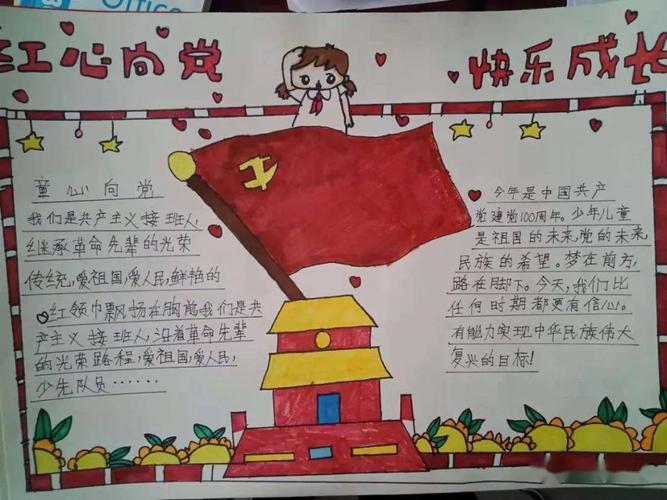 Office
红心向党
快乐成长
童心向党
我们是共产主义接班人,
继承革命先辈的光荣
传统,爱祖国,爱人民,鲜艳的
红领巾飘扬在胸前我们是共
产主义接班人,沿着革命先辈
的光荣路程,爱祖国,爱人民,
少先队员……
今年是中国共产
党建党100周年。少年儿童
是祖国的未来,党的未来,
民族的希望。梦在前方,
路在脚下。今天,我们比
任何时期都更有信心。
有能力实现中华民族伟大
复兴的目标!